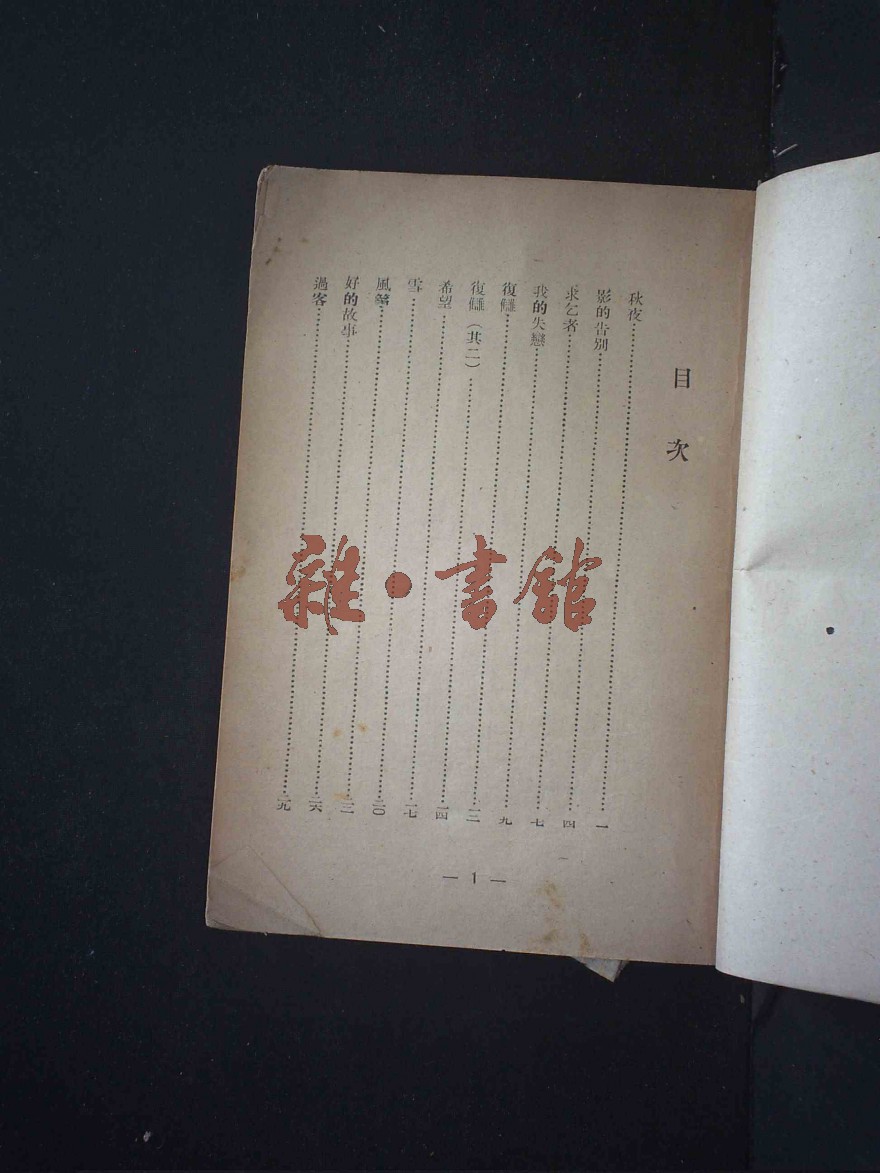 目次
秋夜……一
影的告別……四
求乞者……七
我的失戀……九
復讎……一二
復讎（其二）……一四
希望……一七
雪……二〇
風箏……二三
好的故事……二六
過客……二九
— 1 —
雜·書館